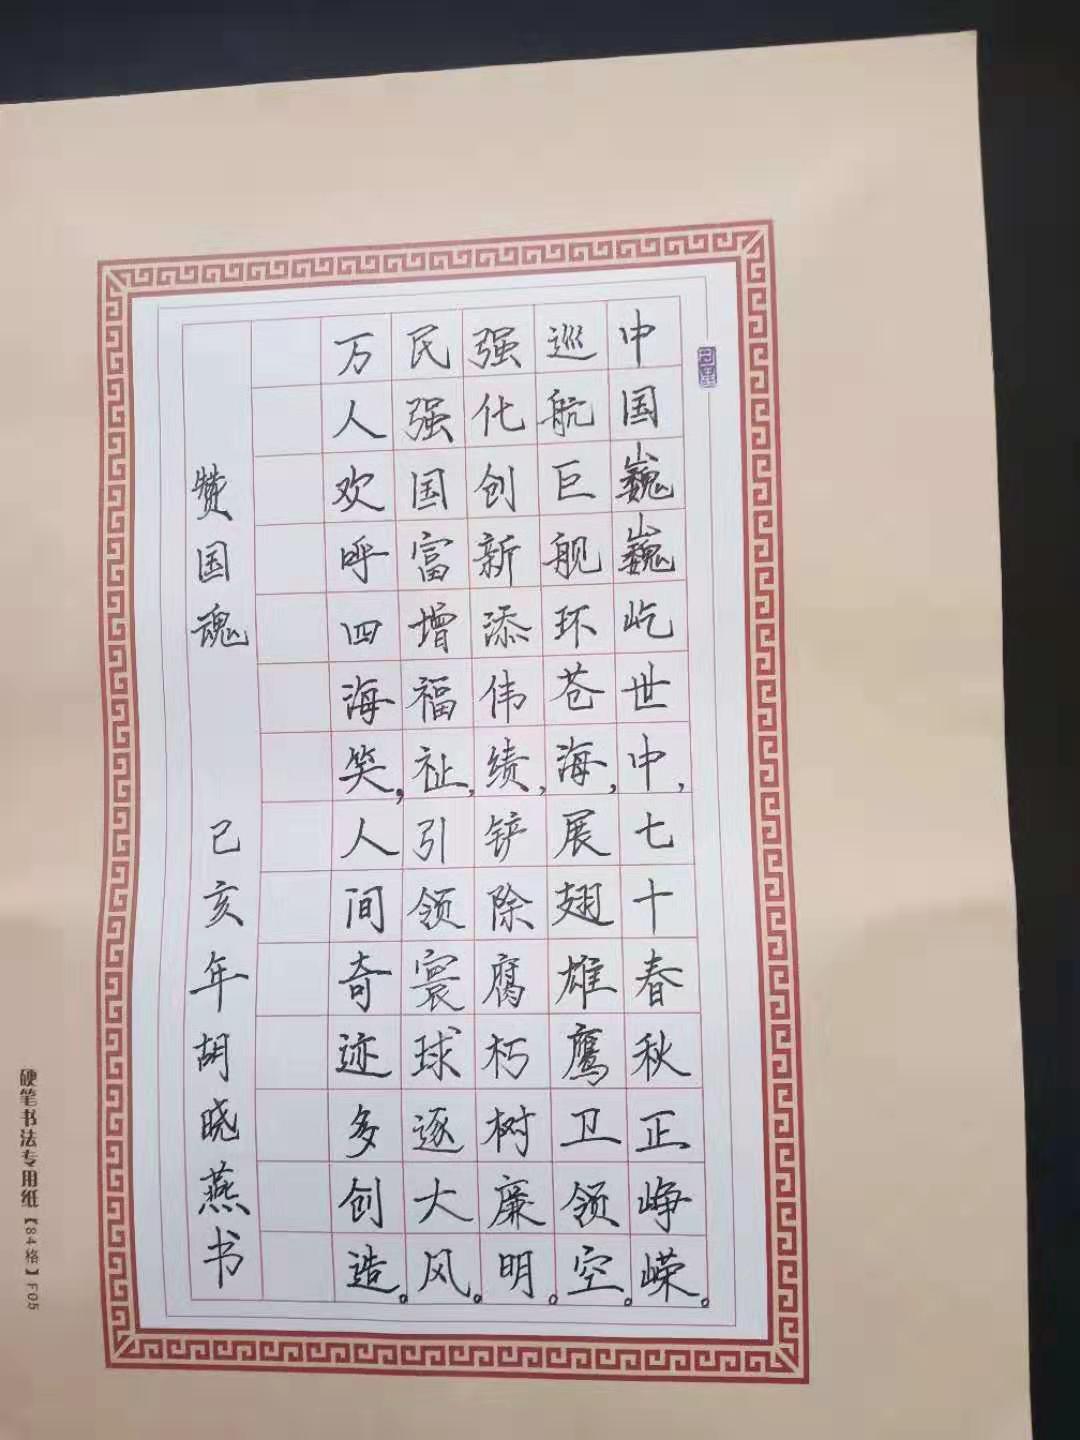 中国巍巍屹世中，七十春秋正峥嵘。
巡航巨舰环苍海，展翅雄鹰卫领空。
强化创新添伟绩，铲除腐朽树廉明。
民强国富增福祉，引领寰球逐大风。
万人欢呼四海笑，人间奇迹多创造。
赞国魂 己亥年胡晓燕书
硬笔书法专用纸【84格】F05